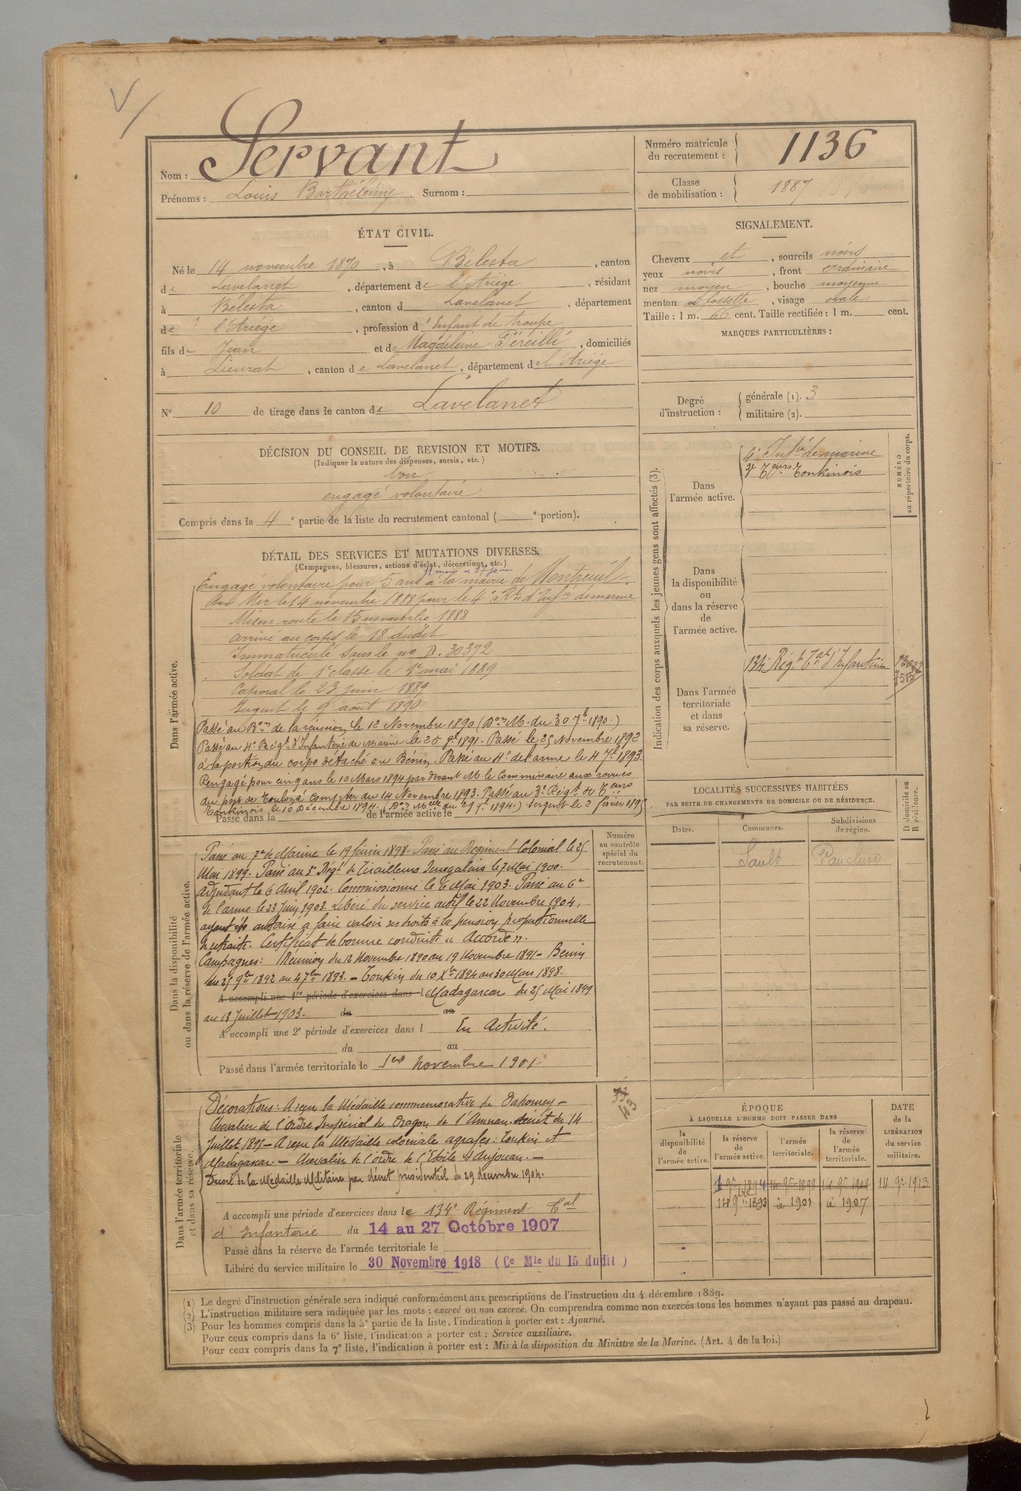 Nom : Servant
Prénoms : Louis Barthélémy Surnom :
Numéro matricule du recrutement : 1136
Classe de mobilisation : 1887
ÉTAT CIVIL.
Né le 14 novembre 1870, à Bélesta, canton
de Lavelanet, département de l'Ariège, résidant
à Bélesta, canton d Lavelanet, département
de l'Ariège, profession d'Enfant de troupe
fils de Jean et de Magdeleine, domiciliés
à Lieurac, canton de Lavelanet, département de l'Ariège
N° 10 de tirage dans le canton de Lavelanet
SIGNALEMENT.
Cheveux et, sourcils noirs
yeux noirs, front ordinaire
nez moyen, bouche moyenne
menton à fossette, visage ovale
Taille : 1 m. 66 cent. Taille rectifiée : 1 m. cent.
MARQUES PARTICULIÈRES :
Degré d'instruction : générale (1). 3
militaire (2).
DÉCISION DU CONSEIL DE REVISION ET MOTIFS.
(Indiquer la nature des dispenses, sursis, etc.)
bon
engagé volontaire
Compris dans la 4e partie de la liste du recrutement cantonal ( e portion).
DÉTAIL DES SERVICES ET MUTATIONS DIVERSES.
(Campagnes, blessures, actions d'éclat, décorations, etc.)
Dans l'armée active.
Engagé volontaire pour 5 ans à la mairie de Montreuil
sur Mer le 14 novembre 1888 pour le 4e Rt d'Infie de marine
Mis en route le 15 novembre 1888
arrivé au corps le 18 dudit
Immatriculé sous le no D. 30372
Soldat de 1e classe le 1er mai 1889
Caporal le 23 juin 1889
Sergent le 9 août 1890
Passé au Bon de la réunion le 12 Novembre 1890 (Don M. du 30 7b 1890.)
Passé au 4e Régt d'Infanterie de Marine le 1891. Passé le 25 Novembre 1892
à la portion du corps détaché au Bénin. Passé au 4e de l'arme le 4 7b 1893
Rengagé pour cinq ans le 10 Mars 1894 par devant M. le Commissaire aux revues
du port de Toulon à compter du 14 Novembre 1893. Passé au 3e Régt de Teurs
Tonkinois le 10 Décembre 1894. Sergent le 2 février 1895
Passé dans la de l'armée active le
Dans la disponibilité ou dans la réserve de l'armée active.
Numéro au contrôle spécial du recrutement.
Passé au de Marine le 19 Juin 1898. Passé au Régiment Colonial le 25
Mai 1899. Passé au Régt de Tirailleurs Sénégalais le 7 Mai 1900.
Adjudant le 6 Avril 1902. Commissionné le 6 Mai 1903. Passé au 6e
de l'arme le 23 Juin 1903. Libéré du service actif le 22 Novembre 1904,
ayant été autorisé à faire valoir ses droits à la pension proportionnelle
de retraite. Certificat de bonne conduite "Accordé".
Campagnes : Réunion du 12 Novembre 1890 au 19 Novembre 1891 – Bénin
du 25 9bre 1892 au 4 7bre 1893. – Tonkin du 10 Xbre 1894 au 30 Mars 1898.
A accompli une 1re période d'exercices dans l Madagascar du 25 Mai 1899
au 18 Juillet 1903. du au
A accompli une 2e période d'exercices dans l En Activité.
du au
Passé dans l'armée territoriale le 1er Novembre 1901
Dans l'armée territoriale et dans sa réserve.
43
Décorations : A reçu la Médaille commémorative du Dahomey –
Chevalier de l'Ordre Impérial du Dragon de l'Annam. décret du 14
Juillet – A reçu la Médaille coloniale agrafes : Tonkin et
Madagascar – Chevalier de l'ordre de l'Étoile d'Anjouan. –
Décoré de la Médaille Militaire par décret présidentiel du 29 décembre 1904.
A accompli une période d'exercices dans le 134e Régiment Tal
d'Infanterie du 14 au 27 Octobre 1907
Passé dans la réserve de l'armée territoriale le
Libéré du service militaire le 30 Novembre 1918 (Ce Mle du 15 dudit)
Indication des corps auxquels les jeunes gens sont affectés (3).
NUMÉRO au répertoire du corps.
Dans l'armée active.
4e Infrie de marine
3e Teurs Tonkinois
Dans la disponibilité ou dans la réserve de l'armée active.
Dans l'armée territoriale et dans sa réserve.
134e Régt Tal d'Infanterie
LOCALITÉS SUCCESSIVES HABITÉES
PAR SUITE DE CHANGEMENTS DE DOMICILE OU DE RÉSIDENCE.
Dates. Communes. Subdivisions de région. D domicile ou R résidence.
Sault
ÉPOQUE
À LAQUELLE L'HOMME DOIT PASSER DANS
la disponibilité de l'armée active. la réserve de l'armée active. l'armée territoriale. la réserve de l'armée territoriale.
DATE de la LIBÉRATION du service militaire.
14 9e 1913
14 9e 1893 1901 1907
(1) Le degré d'instruction générale sera indiqué conformément aux prescriptions de l'instruction du 4 décembre 1889.
(2) L'instruction militaire sera indiquée par les mots : exercé ou non exercé. On comprendra comme non exercés tous les hommes n'ayant pas passé au drapeau.
(3) Pour les hommes compris dans la 5e partie de la liste, l'indication à porter est : Ajourné.
Pour ceux compris dans la 6e liste, l'indication à porter est : Service auxiliaire.
Pour ceux compris dans la 7e liste, l'indication à porter est : Mis à la disposition du Ministre de la Marine. (Art. 4 de la loi.)